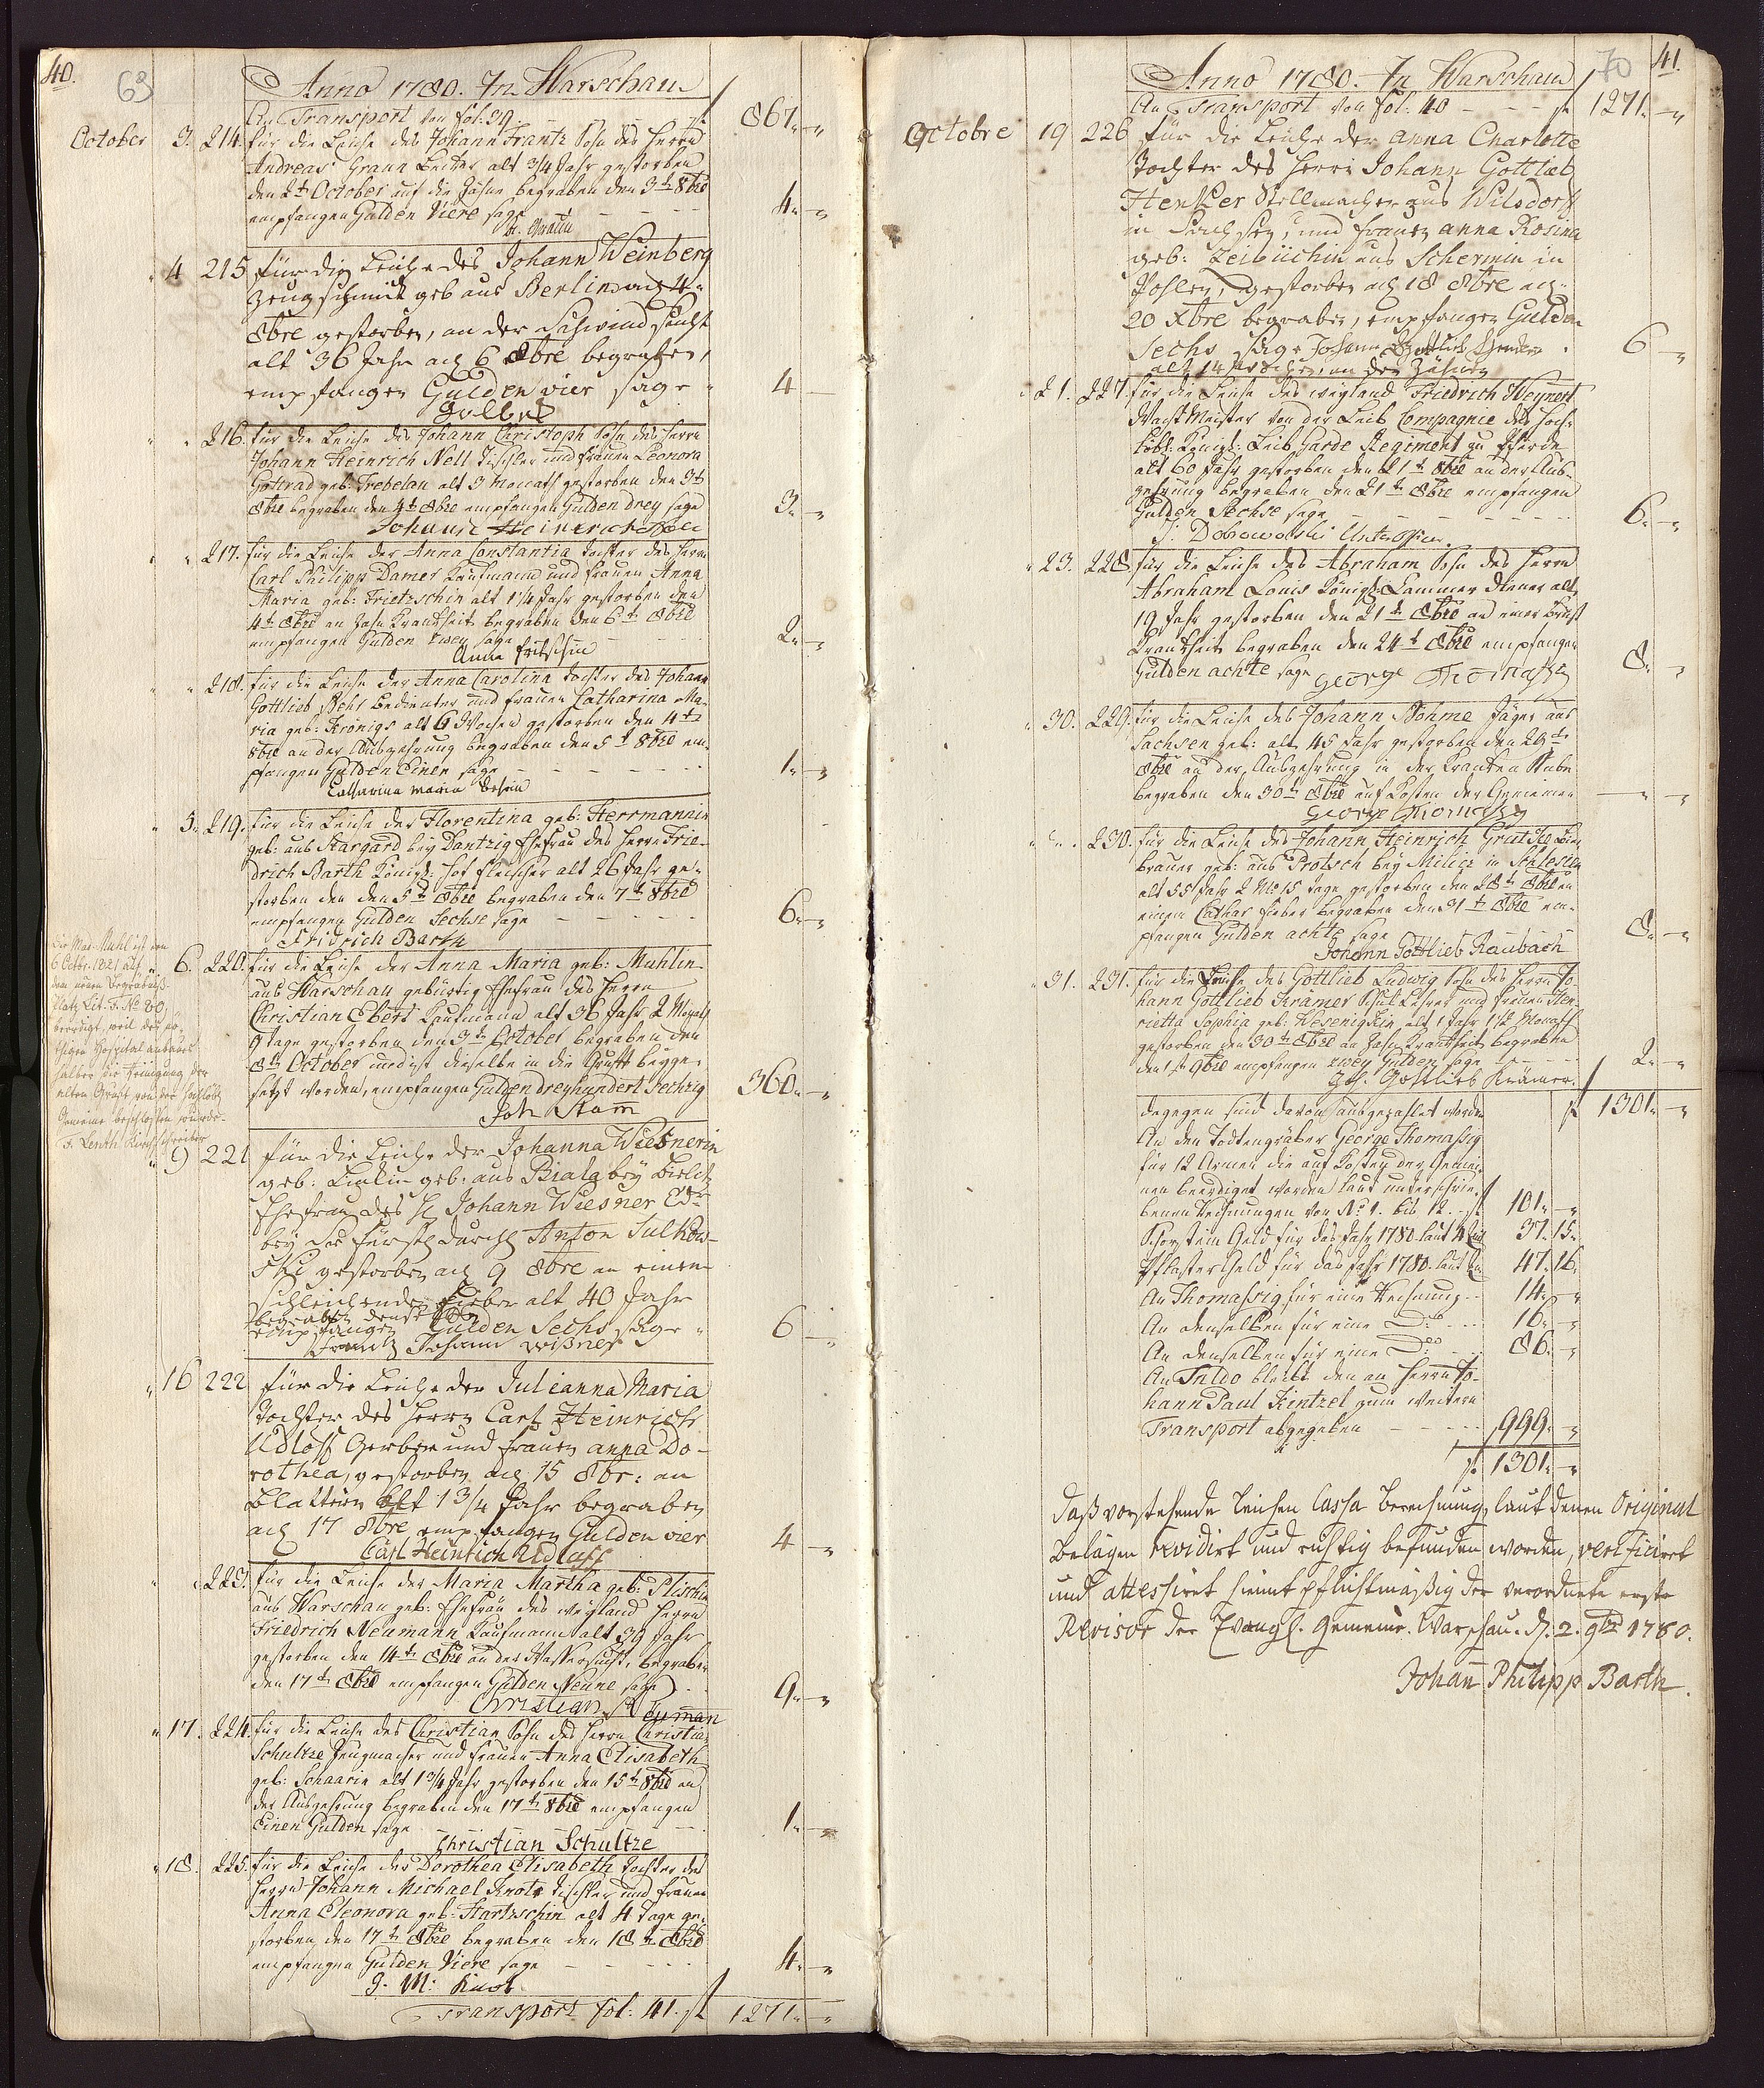 40.
63
Anno 1780. In Warschau
An Transport von fol. 39. — fl 867.„—„
October 3. 214. für die Leiche des Johann Frantz Sohn des Herrn
Andreas Grann Becker alt 3/4 Jahr gestorben
den 2t October auf die Zähne begraben den 3t 8bre
empfangen Gulden Viere sage — 4.„—„
„ 4 215 für die Leiche des Johann Weinberg
Zeugschmidt geb aus Berlin ad 4„
8bre gestorben, an der Schwind sucht
alt 36 Jahr ad 6 8bre begraben,
empfangen Gulden vier sage „ 4 —
„ „ 216. für die Leiche des Johann Christoph Sohn des Herrn
Johann Heinrich Nell Tischler und Frauen Leonora
Gottrad geb: Trebelan alt 3 Monath gestorben den 3t
8bre begraben den 4t 8bre empfangen Gulden drey sage 3.„—„
Johann Heinerich Nell
„ „ 217. für die Leiche der Anna Constantia Tochter des Herrn
Carl Philipp Damer Kaufmann und Frauen Anna
Maria geb: Frietzschin alt 1 1/4 Jahr gestorben den
4t 8bre an Zahn Kranckheit begraben den 6t 8bre
empfangen Gulden zwey sage — 2.„—„
Anna fritschin
„ „ 218. für die Leiche der Anna Carolina Tochter des Johann
Gottlieb Behr Bedienter und Frauen Catharina Ma-
ria geb: Krönigs alt 6 Wochen gestorben den 4t
8bre an der Auszehrung begraben den 5t 8bre em-
pfangen Gulden Einen sage — 1.„—„
Catharina maria Behrin
„ 5. 219. für die Leiche der Florentina geb: Herrmannin
geb: aus Stargard bey Dantzig Ehefrau des Herrn Frie-
drich Barth Königl: Hof Fleischer alt 26 Jahr ge-
storben den den 5t 8bre begraben den 7t 8bre
empfangen Gulden Sechse sage — 6.„—„
Fridrich Barth
„ 6. 220. für die Leiche der Anna Maria geb: Muhlin
aus Warschau gebürtig Ehefrau des Herrn
Christian Ebert Kaufmann alt 36 Jahr 2 Monath
9 Tage gestorben den 3t October begraben den
8t October und ist dieselbe in die Gruft beyge-
setzt worden, empfangen Gulden dreyhundert Sechzig 360.„—„
Joh Stam̄
Die Mad. Muhl ist den
6 Octbr. 1821 auf
dem neuen Begräbniß-
Platz Lit. F. No 80
beerdigt, weil der nö-
thigen Hospital anbaues
halber die Reinigung der
alten Gruft von der
Gemeine beschlossen wurde.
„ 9 221 für die Leiche der Johanna Wiesnerin
geb: Linkin geb: aus Biala bey Bielitz
Ehefrau des H Johann Wiesner
bey Sr Fürstl Durchl Anton Sulkow-
ski gestorben ad 9 8bre an einem
schleichenden Fieber alt 40 Jahr
begraben
empfangen Gulden Sechs sage „ 6 —„
Johann wißner
„ 16 222 für die Leiche der Julianna Maria
Tochter des Herrn Carl Heinrich
Udloff Gerber und Frauen anna Do-
rothea, gestorben ad 15 8br: an
Blattern alt 1 3/4 Jahr begraben
ad 17 8bre empfangen Gulden vier 4 —„
Carl Heinrich Udloff
„ „ 223. für die Leiche der Maria Martha geb: Plischin
aus Warschau geb: Ehefrau des weyland Herrn
Friedrich Neumann Kaufmann alt 39 Jahr
gestorben den 14t 8bre an der Wassersucht, begraben
den 17t 8bre empfangen Gulden Neune sage 9.„—„
Christian Neuman
„ 17. 224. für die Leiche des Christian Sohn des Herrn Christian
Schultze Zeugmacher und Frauen Anna Elisabeth
geb: Schaarin alt 1 3/4 Jahr gestorben den 15t 8bre an
der Auszehrung begraben den 17t 8bre empfangen
Einen Gulden sage — 1.„—„
Christian Schultze
„ 18. 225. für die Leiche der Dorothea Elisabeth Tochter des
Herrn Johann Michael Knots Tischler und Frauen
Anna Eleonora geb: Hartzschin alt 4 Tage ge-
storben den 17t 8bre begraben den 18t 8bre
empfangen Gulden Viere sage — 4.„—„
J. M: Knot
Transport fol: 41. fl 1271.„—„
41.
70
Anno 1780. In Warschau
An Transport von fol. 40 — fl 1271.„—„
Octobre 19 226 für die Leiche der anna Charlotte
Tochter des Herrn Johann Gottlieb
Henker Stellmacher aus Wilsdorf
in Sachsen, und Frauen anna Rosina
geb: Zeibüchin aus Schermin in
Pohlen, gestorben ad 18 8bre ad
20 Xbre begraben, empfangen Gulden
Sechs sage Johann Gottlieb Henker „ 6 —„
alt 14 Wochen, an den Zähnen
„ 21. 227. für die Leiche des weyland Friedrich Weynert
WachtMeister von der Leib Compagnie des Hoch-
löbl: Königl: Leib Garde Regiment zu Pferde
alt 60 Jahr gestorben den 21t 8bre an der Aus-
zehrung begraben den 21t 8bre empfangen
Gulden Sechse sage — 6.„—„
J: Dobrowolski Unteroffic:
„ 23. 228. für die Leiche des Abraham Sohn des Herrn
Abraham Louis Königl: Cammer diener alt
19 Jahr gestorben den 21t 8bre an einer Brust
Kranckheit begraben den 24t 8bre empfangen
Gulden achte sage 8.„—„
George Thomaßig
„ 30. 229. für die Leiche des Johann Böhme Jäger aus
Sachsen geb: alt 45 Jahr gestorben den 29t
8bre an der Auszehrung in der Krancken Stube
begraben den 30t 8bre auf Kosten der Gemeine —„—„
George Thomaßig
„ „ 230. für die Leiche des Johann Heinrich Grutzke Bier
brauer geb: aus Protsch bey Milicz in Schlesien
alt 55 Jahr 2 Mo 15 Tage gestorben den 28t 8bre an
einem Cathar Fieber begraben den 31t 8bre em-
pfangen Gulden achte sage 8.„—„
Johann Gottlieb Raubach
„ 31. 231. für die Leiche des Gottlieb Ludwig Sohn des Herrn Jo-
hann Gottlieb Krämer Schul Lehrer und Frauen Hen-
rietta Sophia geb: Wesenigkin alt 1 Jahr 1 1/2 Monath
gestorben den 30t 8bre an Zahn Kranckheit begraben
den 1t 9bre empfangen zwey Gulden sage — 2.„—„
Joh. Gottlieb Krämer.
fl 1301.„—„
dagegen sind davon ausgezahlet worden
An den Todtengräber George Thomaßig
für 12 Armen die auf Kosten der Gemei-
nen beerdiget worden laut unterschrie-
benen Rechnungen von No 1. bis 12. fl 101.„—„
Schorstein Geld für das Jahr 1780 laut 37.15.
Pflaster Geld für das Jahr 1780. laut 47.16.
An Thomaßig für eine Rechnung 14.„—„
An denselben für eine Do 16.„—„
An denselben für eine Do 86.„—„
An Saldo bleibt den an Herrn Jo-
hann Paul Kintzel zum weitern
Transport abgegeben — 999.„—„
fl 1301.„—„
Daß vorstehende Leichen Cassa Berechnung, laut denen Original
Belägen revidirt und richtig befunden worden, verificiret
und attestiret hiemit pflichtmäßig der verordnete erste
Revisor der Evangl. Gemeine. Warschau. d. 2. 9br 1780.
Johan̄ Philipp Barth.